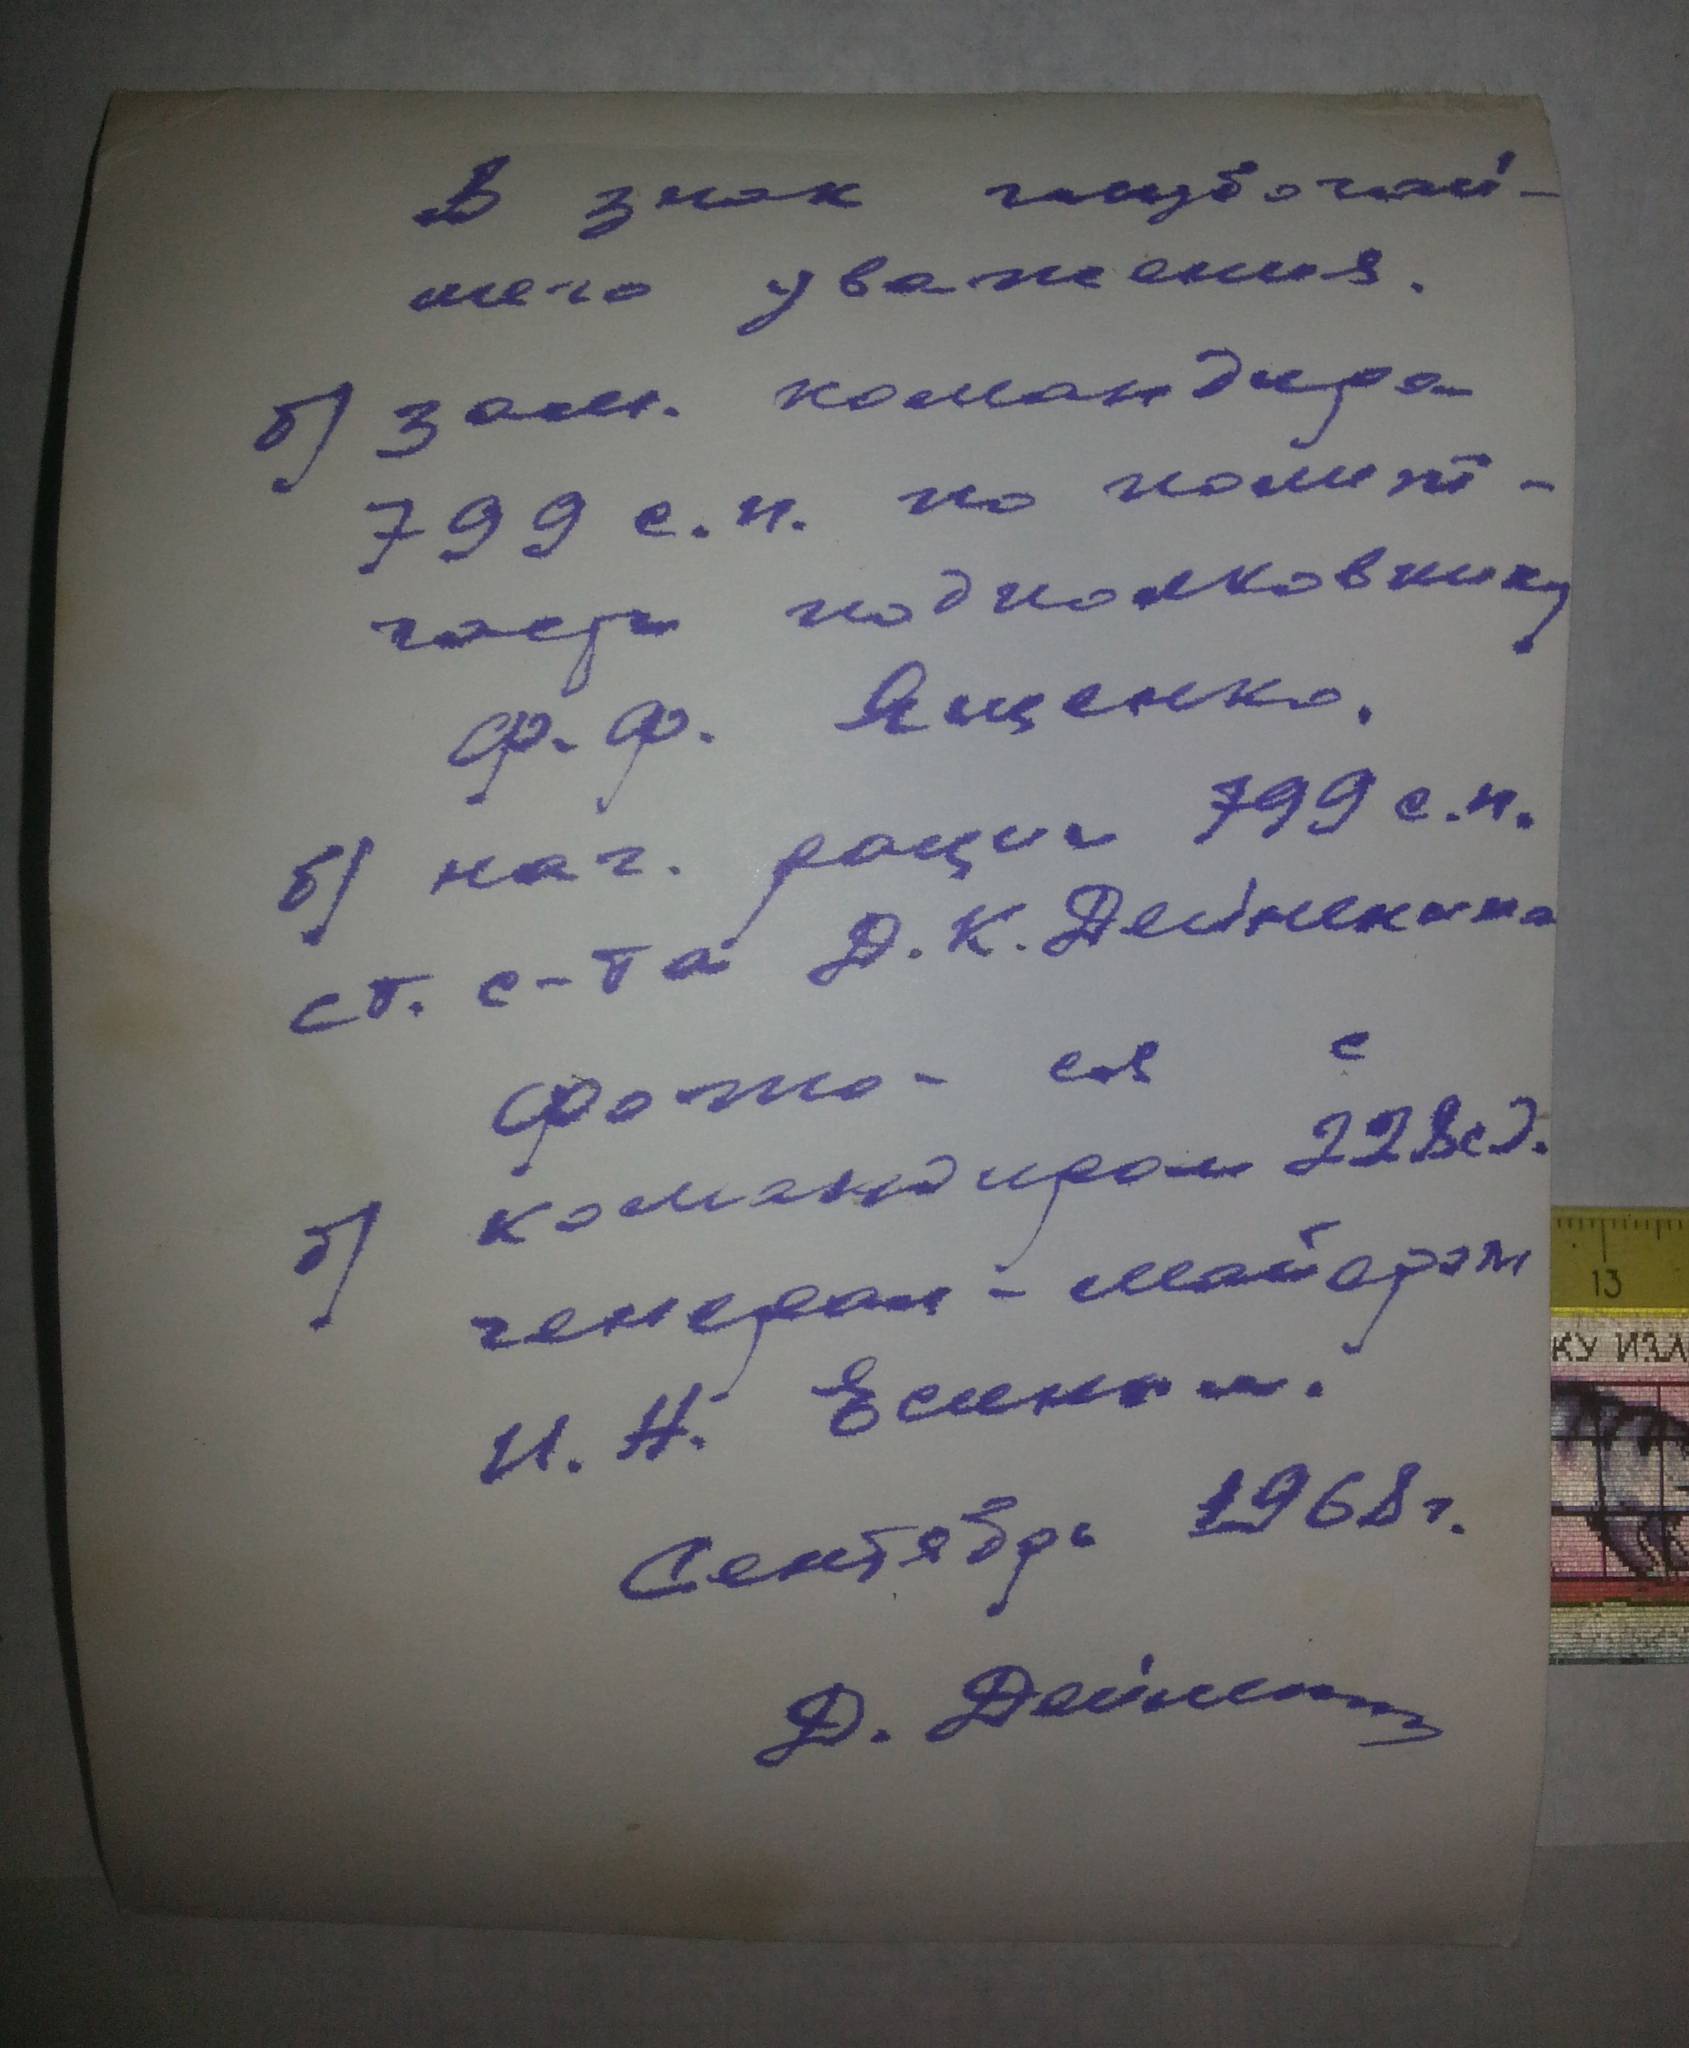 В знак глубочай-
шего уважения.
б) зам. командира
799 с.п. по полит-
части подполковнику
Ф.Ф. Ященко.
б) нач. рации 799 с.п.
ст. с-та Д.К. Дейнекина
Фото-ся с
б) командиром 228 с.д.
генерал-майором
И.Н. Есиным.
Сентябрь 1968 г.
Д.
13
КУ ИЗЛ